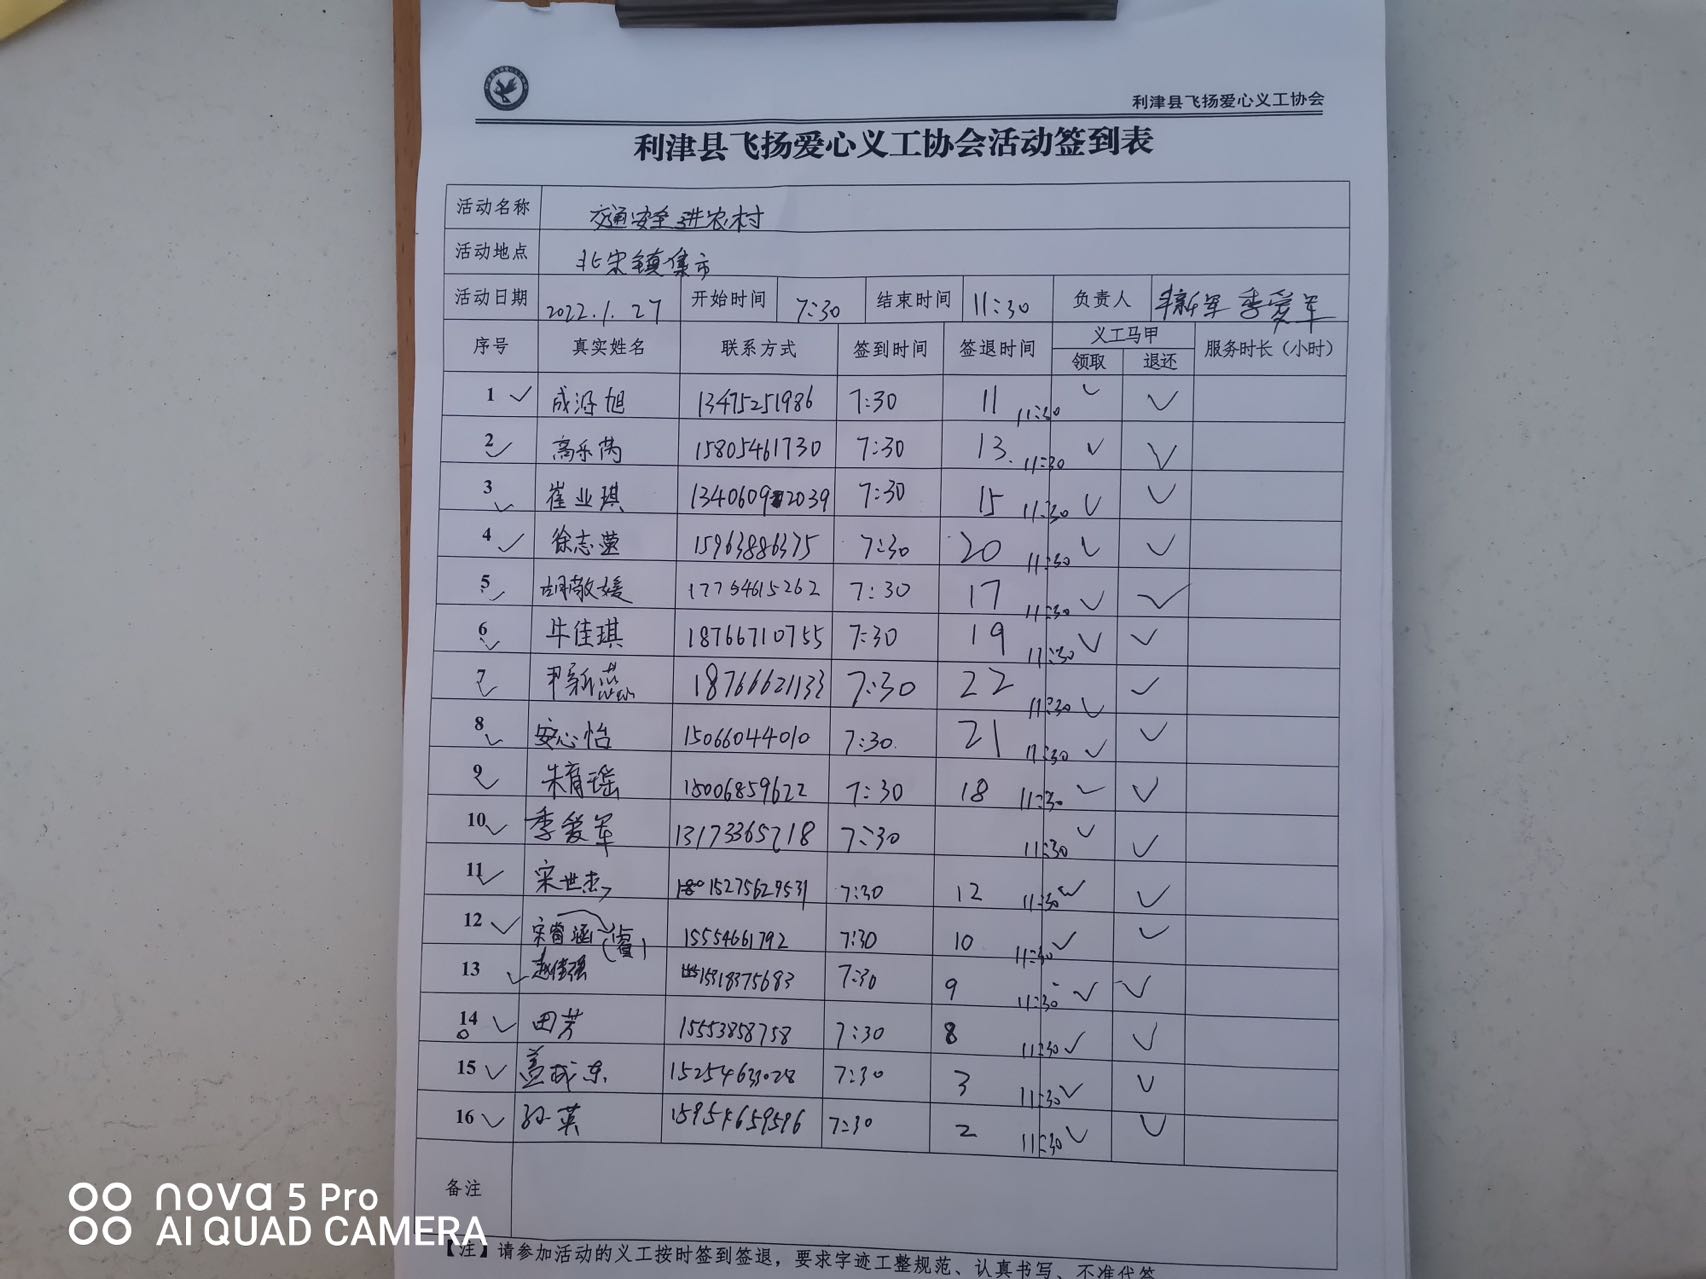 利津县飞扬爱心义工协会
利津县飞扬爱心义工协会活动签到表
活动名称 交通安全进农村
活动地点 北宋镇集市
活动日期 2022.1.27 开始时间 7:30 结束时间 11:30 负责人 季爱军
序号 真实姓名 联系方式 签到时间 签退时间 义工马甲 服务时长（小时）
领取 退还
1 ✓ 13475251986 7:30 11 11:30 ✓ ✓
2 ✓ 高乐芮 15805461730 7:30 13. 11:30 ✓ ✓
3 ✓ 崔业琪 13406092039 7:30 15 11:30 ✓ ✓
4 ✓ 徐志莹 15963886375 7:30 20 11:30 ✓ ✓
5 ✓ 胡敬媛 17754615262 7:30 17 11:30 ✓ ✓
6 ✓ 牛佳琪 18766710755 7:30 19 11:30 ✓ ✓
7 ✓ 18766621133 7:30 22 11:30 ✓ ✓
8 ✓ 安心怡 15066044010 7:30. 21 11:30 ✓ ✓
9 ✓ 朱育瑶 15006859622 7:30 18 11:30 ✓ ✓
10 ✓ 季爱军 13173365718 7:30 11:30 ✓ ✓
11 ✓ 宋世杰 15275629531 7:30 12 11:30 ✓ ✓
12 ✓ 15554661792 7:30 10 11:30 ✓ ✓
13 ✓ 赵佳强 15318375683 7:30 9 11:30 ✓ ✓
14 ✓ 田芳 15553858758 7:30 8 11:30 ✓ ✓
15 ✓ 盖成东 15254633028 7:30 3 11:30 ✓ ✓
16 ✓ 孙英 15954659596 7:30 2 11:30 ✓ ✓
备注
【注】请参加活动的义工按时签到签退，要求字迹工整规范、认真书写、不准代签
nova 5 Pro
AI QUAD CAMERA